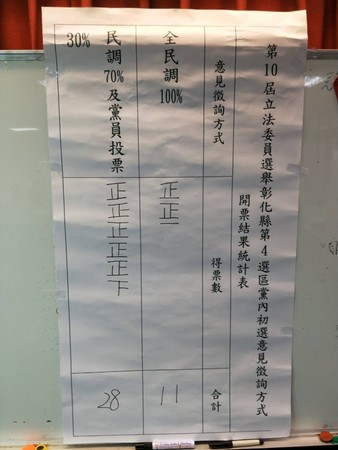 第10屆立法委員選舉彰化縣第4選區黨內初選意見徵詢方式
開票結果統計表
意見徵詢方式
得票數
合計
全民調100%
正正一
11
民調70%及黨員投票30%
正正正正正下
28